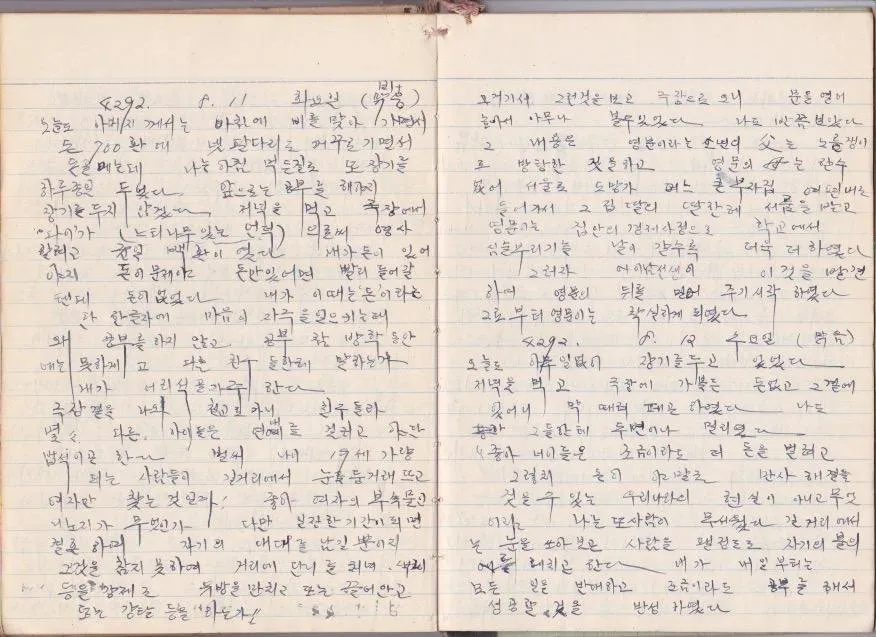 4292. 8. 11 화요일
오늘도 아버지 께서는 바위에 비를 맞아 가면서
돈 700환에 넷 팔다리로 기면서
돈을 메는데 나는 아침 먹든길로 또 장기를
하루종일 두었다 앞으로는 공부를 해야지
장기를 두지 않겠다 저녁을 먹고 극장에서
(느티나무 있는 언덕) 으로써
백 환이 였다 내가 돈이 있어
야지 돈이 문제야 돈만 있어면 빨리 들어갈
텐데 돈이 없었다 내가 이때는 '돈'이라는
한 글자에 마음의 자극을 일으키는데
왜 공부를 하지 않고 공부 참 방학 동안
에는 못하게 고 다른 친구 들한테 말하는가
내가 어리석은가 한다
극장 결을 나와 집으로 가니 친구 들과
몇 다른 아이들은 연애를 걸려고 야단
법석이곤 한다 벌써 나이 19세 가량
되는 사람들이 길거리에서 눈을 뜨고
여자만 찾는 것일까! 좋아 여자의
무엇인가 다만 일정한 기간이 되면
결혼 하며 자기의 대대를 남길 뿐이지
그것을 참지 못하여 거리에
등을 강제로 유방을 만치고 또는 끌어안고
또는 강탈 등을 하는가!!
그런것을 보고 극장으로 오니 문을 열어
놓아서 아무나 볼수있었다 나도 반쯤 보았다
그 내용은 영문이라는 소년의 父는 노름쟁이
로 방탕한 짓을 하고 영문의 母는 할수
없어 서울로 도망가 어느 큰 부자집
들어가서 그 집 딸의
영문이는 집안의 경제사정으로 학교에서
심술부리기는 날이 갈수록 더욱 더 하였다
그러자 선생이 이것을 발견
하여 영문의 뒤를 밀어 주기시작 하였다
그로 부터 영문이는 착실하게 되였다
4292. 8. 12 수요일 (맑음)
오늘도 하루 일없이 장기를 두고 있었다
저녁을 먹고 극장에 가볼은 돈없고 그 곁에
있어니 막 때려 패곤 하였다 나도
그들한테 두면이나 멀리였다
좋아 너이들은 조금이라도 더 돈을 벌려고
그렇치 돈이 야말로 만사 해결을
것을 수 있는 우리나라의 현실이 아니고 무엇
이랴 나는 또 사람이 무서웠다 길 거리에서
는 눈을 쏘아보고 사람을 자기의
해치곤 한다 내가 내일부터는
모든 일을 반대하고 조금이라도 공부를 해서
성공할 것을 반성 하였다